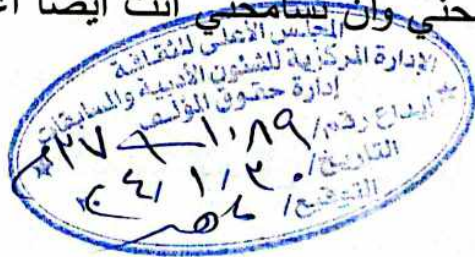 حني وان تسامحني انت ايضا اع
المجلس الأعلى للثقافة
الإدارة المركزية للشئون الأدبية والمسابقات
إدارة حقوق المؤلف
إيداع رقم/ ١٠٨٩
التاريخ/ ٣٠ / ١ /
التوقيع/